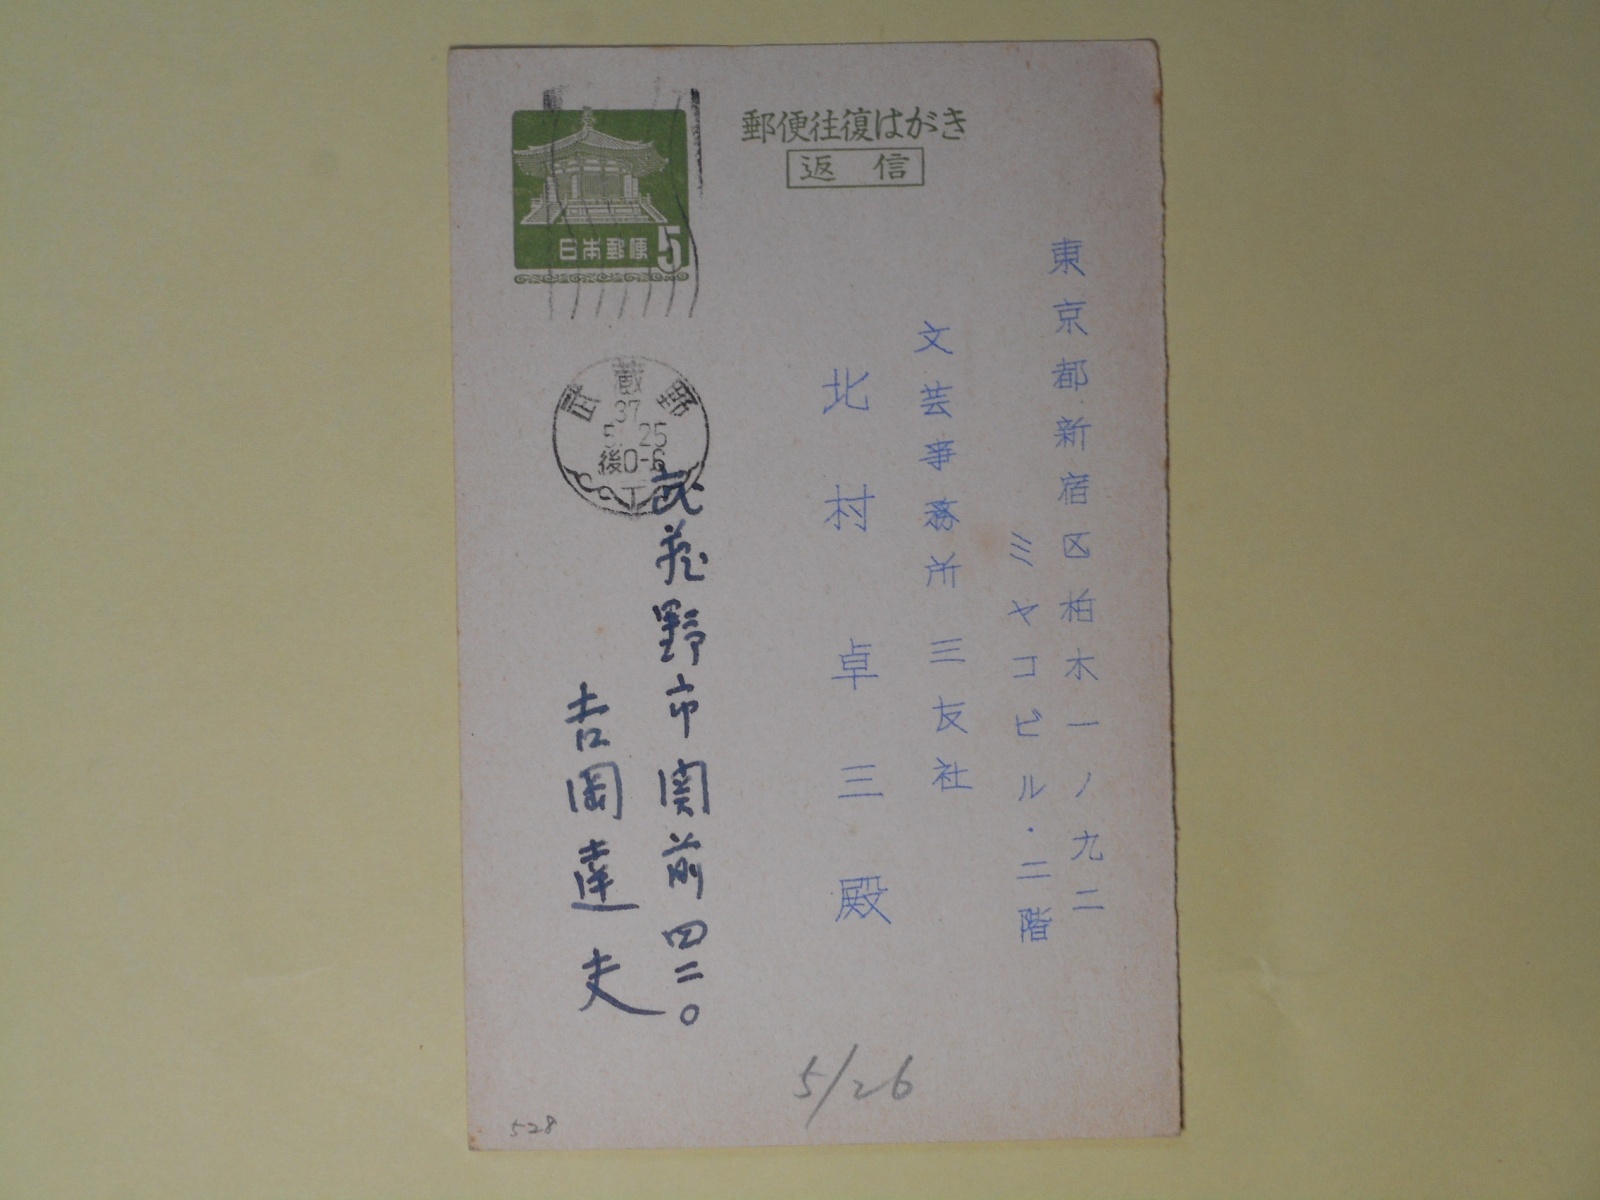 郵便往復はがき
返信
日本郵便 5
東京都新宿区柏木一ノ九二
ミヤコビル・二階
文芸事務所 三友社
北村卓三殿
武蔵野
37
5. 25
後0-6
武蔵野市関前四二〇
吉岡達夫
5/26
528